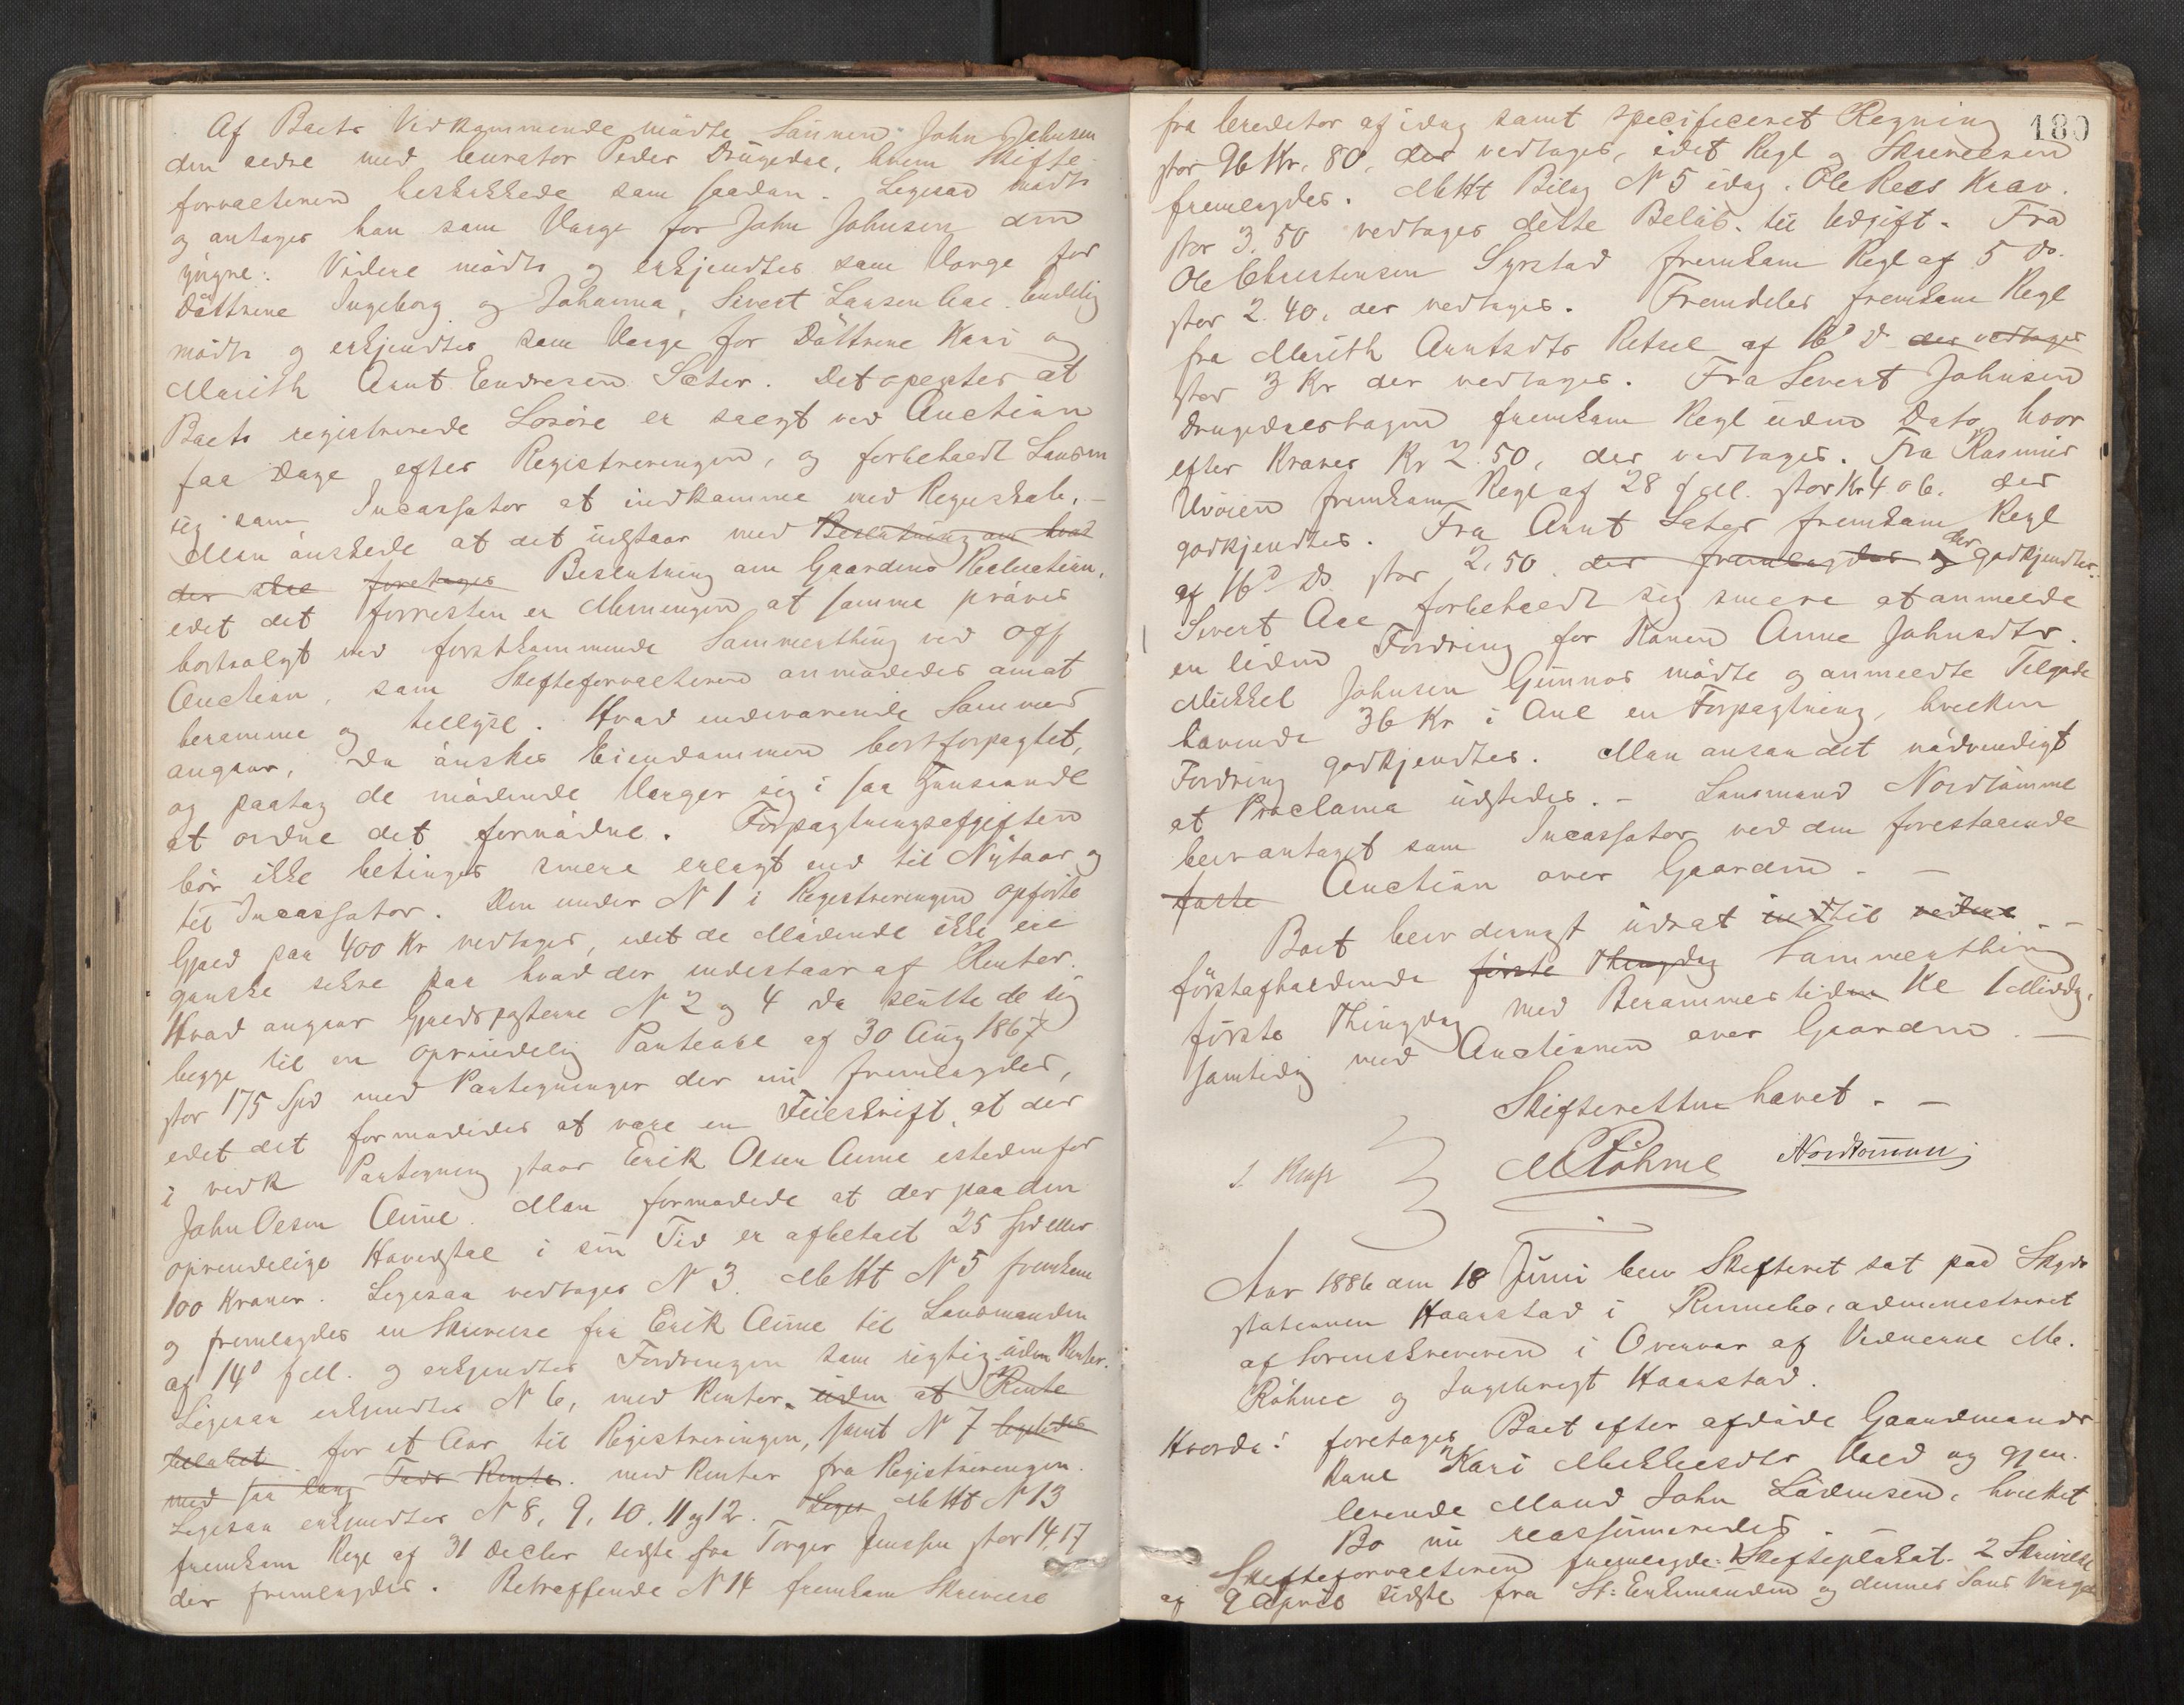 Af Boets Vedkommende mødte Sønnen John Johnsen
den ældre med Curator Peder Drugudal, hvem Skifte-
forvalteren beskikkede som saadan. Ligesaa mødte
og antages han som Værge for John Johnsen den
yngre. Videre mødte og erkjendtes som Værge for
Døttrene Ingeborg og Johanna, Sivert Larsen Aae. Endelig
mødte og erkjendtes som Værge for Døttrene Kari og
Marith Arnt Endresen Sæter. Det oplystes at
Boets registrerede Løsøre er solgt ved Auction
faa Dage efter Registreringen, og forbeholdt Lensm
sig som Incassator at indkomme med Regnskab. -
Man ønskede at det udstaar med Beslutning om hvad
der skal foretages Beslutning om Gaardens Realisation,
idet det forresten er Meningen at samme prøves
bortsolgt ved førstkommende Sommerthing ved off
Auction, som Skifteforvalteren anmodedes om at
beramme og tillyse. Hvad indeværende Sommer
angaar, da ønskes Eiendommen bortforpagtet,
og paatog de mødende Værger sig i saa Henseende
at ordne det fornødne. Forpagtningsafgiften
bør ikke betinges senere erlagt end til Nytaar og
til Incassator. Den under N 1 i Registreringen opførte
Gjæld paa 400 Kr vedtages, idet de Mødende ikke ere
ganske sikre paa hvad der indestaar af Renter.
Hvad angaar Gjældsposterne N 2 og 4 da slutte de sig
begge til en oprindelig Panteobl af 30 Aug 1867
stor 175 Spd med Paategninger der nu fremlagdes,
idet det formodedes at være en Feilskrift, at der
i vedk Paategning staar Erik Olsen Aune istedenfor
John Olsen Aune. Man formodede at der paa den
oprindelige Hovedstol i sin Tid er afbetalt 25 Spd eller
100 Kroner. Ligesaa vedtages N 3. Mht N 5 fremkom
og fremlagdes en Skrivelse fra Erik Aune til Lensmanden
af 14d f M. og erkjendtes Fordringen som rigtig uden Renter.
Ligesaa erkjendtes N 6, med Renter uden at Rente
for et Aar til Registreringen, samt N 7
med saa lang Tids Rente. med Renter fra Registreringen.
Ligesaa erkjendtes N 8, 9, 10, 11 og 12. Liges Mht N 13
fremkom Regl af 31 Decber sidste fra Torger Jenssen stor 14,17
der fremlagdes. Betræffende N 14 fremkom Skrivelse
180
fra Creditor af idag samt specificeret Regning
stor 96 Kr. 80, der vedtages, idet Regl og Skrivelsen
fremlagdes. Mht Bilag N 5 idag. Ole Rees Krav.
stor 3,50 vedtages dette Beløb til Udgift. Fra
Ole Christensen Syrstad fremkom Regl af 5 ds.
stor 2.40. der vedtages. Fremdeles fremkom Regl
fra Marith Arntsdtr af 16d d. der vedtages
stor 3 Kr der vedtages. Fra Sivert Johnsen
fremkom Regl uden Dato, hvor
efter kræves Kr 2.50, der vedtages. Fra Rasmus
Uvøien fremkom Regl af 28 f M. stor Kr 4 06. der
godkjendtes. Fra Arnt Sæter fremkom Regl
af 16d ds stor 2,50. der fremlagdes og der godkjendtes.
Sivert Aae forbeholdt sig senere at anmelde
en liden Fordring for Konen Anne Johnsdtr.
Mikkel Johnsen Gunnes mødte og anmeldte Tilgode
havende 36 Kr i Anl en Forpagtning, hvilken
Fordring godkjendtes. Man ansaa det nødvendigt
at Proclama udstedes. - Lensmand Nordtømme
blev antaget som Incassator ved den forestaaende
faste Auction over Gaarden. -
Boet blev dernæst udsat indtil videre - -
førstafholdende første Thingdag Sommerthing
første Thingdag med Berammestiden Kl 1 Middg.
samtidig med Auctionen over Gaarden. -
Skifteretten hævet. -
MRøhme Nordtømme
Aar 1886 den 18 Juni blev Skifteret sat paa Skyds
stationen Haarstad i Rennebo, administreret
af Sorenskriveren i Overvær af Vidnerne M.
Røhme og Ingebrigt Haarstad.
Hvorda: foretages Boet efter afdøde Gaardmands
Kone Kari Mikkelsdtr Vold og gjen-
levende Mand John Lødensen, hvilket
Bo nu reassumeredes. -
Skifteforvalteren fremlagde: 1 Skifteplakat. 2 Skrivelse
af 9 April sidste fra St: Enkemanden og dennes Søns Værge